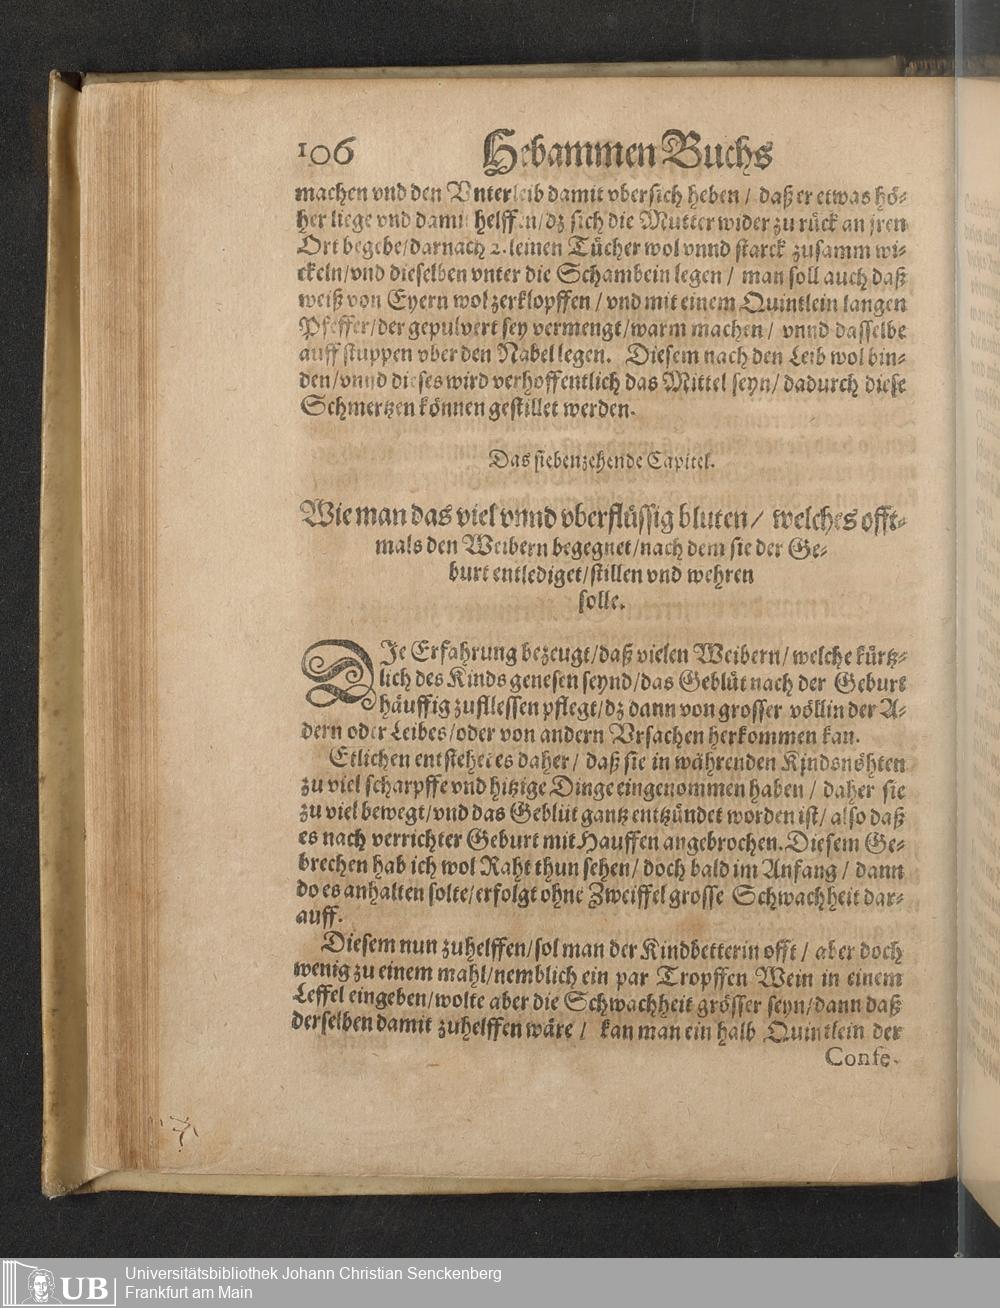 106 Hebammen Buchs
machen vnd den Vnterleib damit vbersich heben / daß er etwas hö-
her liege vnd damit helffen/dz sich die Mutter wider zu rück an jren
Ort begebe/darnach 2. leinen Tücher wol vnnd starck zusamm wi-
ckeln/vnd dieselben vnter die Schambein legen / man soll auch daß
weiß von Eyern wol zerklopffen / vnd mit einem Quintlein langen
Pfeffer/der gepulvert sey vermengt/warm machen / vnnd dasselbe
auff stuppen vber den Nabel legen. Diesem nach den Leib wol bin-
den/vnnd dieses wird verhoffentlich das Mittel seyn/dadurch diese
Schmertzen können gestillet werden.
Das siebenzehende Capitel.
Wie man das viel vnnd vberflüssig bluten / welches offt-
mals den Weibern begegnet/nach dem sie der Ge-
burt entlediget/stillen vnd wehren
solle.
DJe Erfahrung bezeugt/daß vielen Weibern/welche kürtz-
lich des Kinds genesen seynd/das Geblüt nach der Geburt
häuffig zufliessen pflegt/dz dann von grosser völlin der A-
dern oder Leibes/oder von andern Vrsachen herkommen kan.
Etlichen entstehet es daher / daß sie in währenden Kjndsnöhten
zu viel scharpffe vnd hitzige Dinge eingenommen haben / daher sie
zu viel bewegt/vnd das Geblüt gantz entzündet worden ist/also daß
es nach verrichter Geburt mit Hauffen angebrochen. Diesem Ge-
brechen hab ich wol Raht thun sehen/doch bald im Anfang / dann
do es anhalten solte/erfolgt ohne Zweiffel grosse Schwachheit dar-
auff.
Diesem nun zuhelffen/sol man der Kindbetterin offt / aber doch
wenig zu einem mahl/nemblich ein par Tropffen Wein in einem
Leffel eingeben/wolte aber die Schwachheit grösser seyn/dann daß
derselben damit zuhelffen wäre / kan man ein halb Quintlein der
Confe-
UB
Universitätsbibliothek Johann Christian Senckenberg
Frankfurt am Main